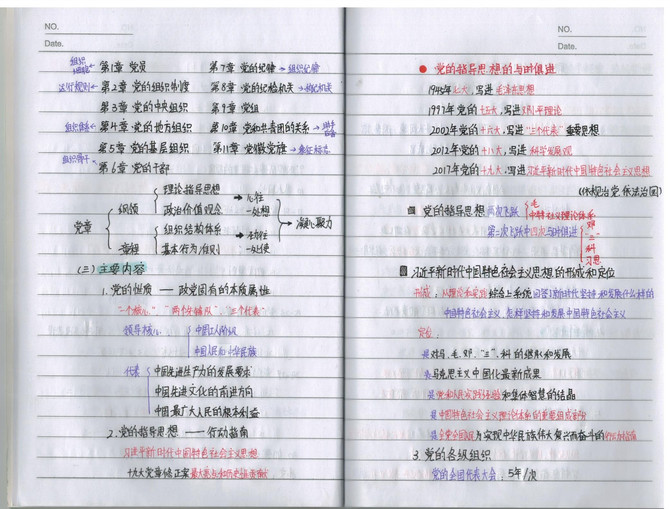 NO.
Date.
组织细胞← 第1章 党员 第7章 党的纪律→组织纪律
运行规则← 第2章 党的组织制度 第8章 党的纪检机关→执纪机关
第3章 党的中央组织 第9章 党组
组织体系← 第4章 党的地方组织 第10章 党和共青团的关系→
第5章 党的基层组织 第11章 党徽党旗→象征标志
组织骨干← 第6章 党的干部
党章
纲领
理论指导思想
政治价值观念
→心往一处想
章程
组织结构体系
基本行为准则
→劲往一处使
→凝心聚力
(二)主要内容
1.党的性质 — 政党固有的本质属性
"一个核心" "两个先锋队" "三个代表"
领导核心
中国工人阶级
中国人民和中华民族
代表
中国先进生产力的发展要求
中国先进文化的前进方向
中国最广大人民的根本利益
2.党的指导思想 —— 行动指南
习近平新时代中国特色社会主义思想
十九大党章修正案最大亮点和历史性贡献
NO.
Date.
● 党的指导思想的与时俱进
1945年七大,写进毛泽东思想
1997年党的十五大,写进邓小平理论
2002年党的十六大,写进"三个代表"重要思想
2012年党的十八大,写进科学发展观
2017年党的十九大,写进习近平新时代中国特色社会主义思想
(依规治党 依法治国)
党的指导思想 两次飞跃
毛
中特社会主义理论体系
第二次飞跃中四次与时俱进
邓
三
科
习思
习近平新时代中国特色社会主义思想的形成和定位
形成:从理论和实践结合上系统回答了新时代坚持和发展什么样的
中国特色社会主义,怎样坚持和发展中国特色社会主义
定位:
是对马、毛、邓、"三"、科的继承和发展
是马克思主义中国化最新成果
是党和人民实践经验和集体智慧的结晶
是中国特色社会主义理论体系的重要组成部分
是全党全国人民为实现中华民族伟大复兴而奋斗的行动指南
3.党的各级组织
党的全国代表大会:5年/次